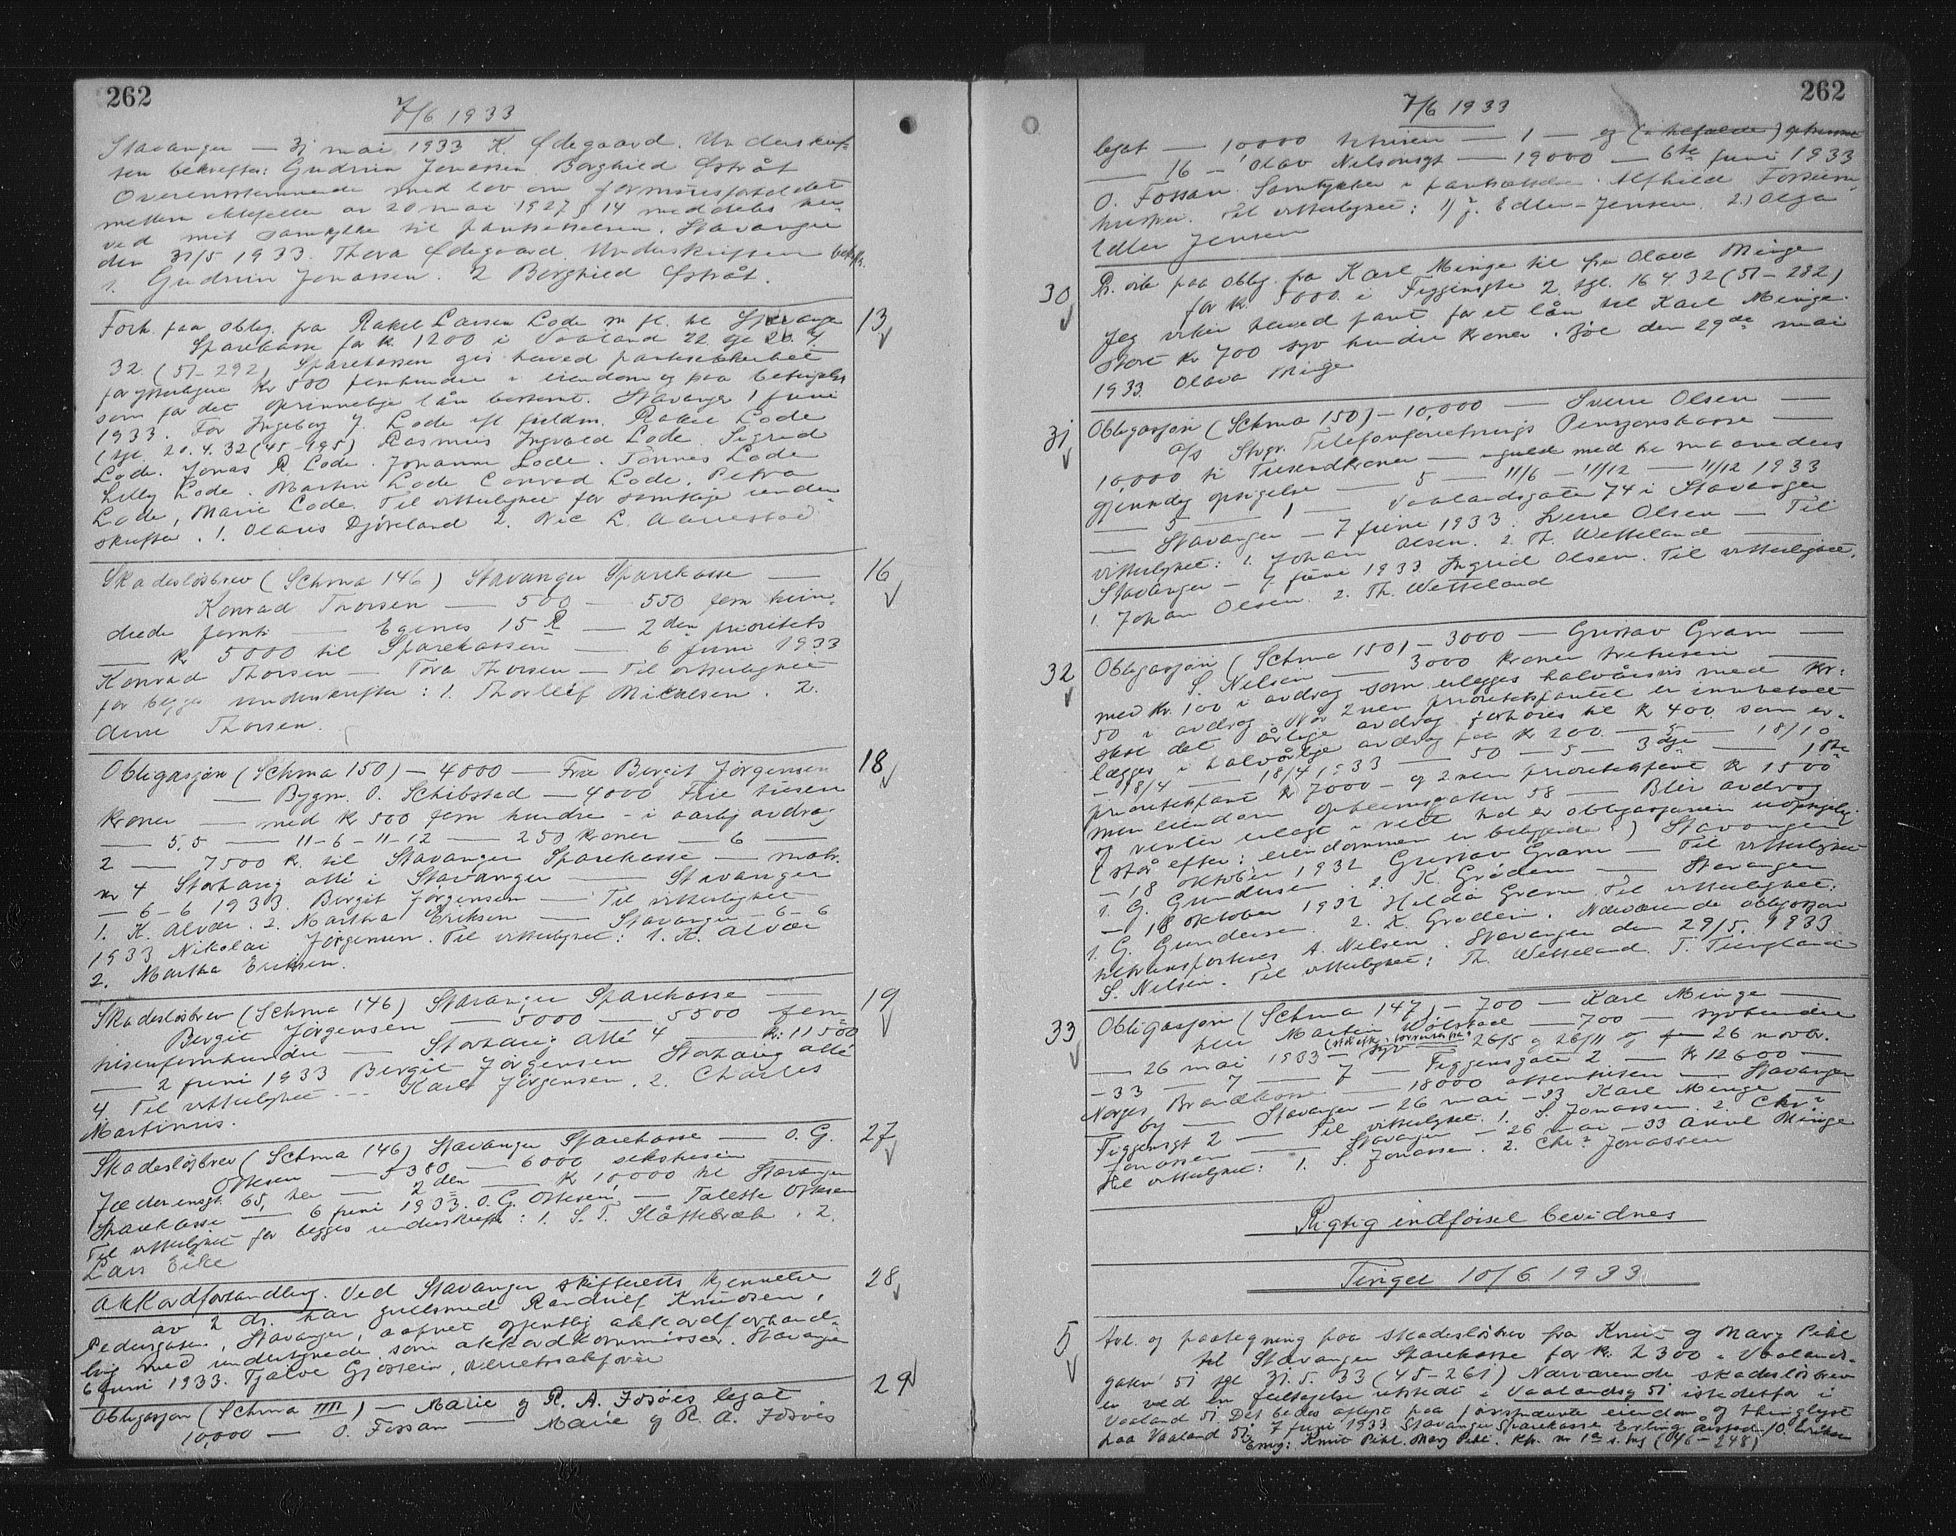 262
7/6 1933
Stavanger — 31 mai 1933 K. Ødegaard. Underskrif-
ten bekrefter: Gudrun Jonassen Borghild Østråt
Overensstemmende med lov om formuesforholdet
mellem ektefeller av 20 mai 1927 § 14 meddeles her-
ved mit samtykke til pantsettelsen. Stavanger
den 31/5 1933. Thora Ødegaard. Underskriften bekr.
1. Gudrun Jonassen. 2 Borghild Østråt.
Forh. paa oblig. fra Rakel Larsen Lode m fl. til Stavanger 13
Sparekasse for kr 1200 i Vaaland 22 tgl 20.4.
32. (51-292) Sparekassen gis herved pantsikkerhet
for ytterligere kr 500 femhundre i eiendom og paa betingelser
som for det oprinnelige lån bestemt. Stavanger 1 juni
1933. For Ingeborg J. Lode eft fuldm. Rakel Lode
(tgl. 20.4.32 (45-195) Rasmus Ingvald Lode. Sigrid
Lode. Jonas R. Lode. Johanne Lode. Tønnes Lode
Lilly Lode. Martin Lode Conrad Lode. Petra
Lode, Marie Lode. Til vitterlighet for samtlige under-
skrifter. 1. Olaus Djöseland 2. Nic L. Aarrestad
Skadesløsbrev (Schma 146) Stavanger Sparekasse — 16
Konrad Thorsen — 500 — 550 fem hun-
drede femti — Egenes 15 — 2den prioritets
— kr 5000 til Sparekassen — 6 juni 1933
Konrad Thorsen — Tora Thorsen — Til vitterlighet
for begges underskrifter: 1. Thorleif Mikalsen. 2.
Thorsen.
Obligasjon (Schma 150) — 4000 — Fru Bergit Jørgensen 18
— Bygm. O. Schibstad — 4000 Fire tusen
kroner — med kr 500 fem hundre - i aarlig avdrag
— 5,5 — 11-6-11-12 — 250 kroner — 6 —
2 — 7500 kr. til Stavanger Sparekasse — matr.
nr 4 Storhaug allé i Stavanger — Stavanger
— 6-6 1933. Bergit Jørgensen — Til vitterlighet
1. K. Alvær. 2. Martha Eriksen — Stavanger - 6-6
1933 Nikolai Jørgensen. Til vitterlighet: 1. K. Alvær
2. Martha Eriksen.
Skadesløsbrev (Schma 146) Stavanger Sparekasse — 19
Bergit Jørgensen — 5000 — 5500 fem
tusenfemhundre — Storhaug allé 4 — kr. 11500
— 2 juni 1933 Bergit Jørgensen Storhaug allé
4. Til vitterlighet --- Karl Jørgensen. 2. Charles
Martinius.
Skadesløsbrev (Schma 146) Stavanger Sparekasse — O.G. 27
Ottesen — 5380 — 6000 sekstusen
Jæderensgt 65, her — 2den — kr 10,000 til Stavanger
Sparekasse — 6 juni 1933. O.G. Ottesen — Talette Ottesen
Til vitterlighet for begges underskrift: 1. S.T. Slåttebræk. 2.
Lars Eike
Akkordforhandling. Ved Stavanger skifteretts kjennelse 28
av 2 ds. har gullsmed Randulf Knudsen,
Pedersgaten, Stavanger, aapnet offentlig akkordforhand-
ling med undertegnede som akkordkommissær. Stavanger
6 juni 1933. Tjalve Gjøstein, overrettssakfører
Obligasjon (Schma IIII) — Marie og R. A. Jøsöes legat 29
10,000 — O. Fossan — Marie og R. A. Jøsöes
262
7/6 1933
legat — 10000 titusen — 1 — og (i tilfælde) opkomme
— 16 — Olav Nilsonsgt — 19000 — 6te juni 1933
O. Fossan. Samtykker i pantsettelse. Alfhild Fossan
hustru. Til vitterlighet: 1) J. Edler-Jensen. 2.) Olga
Edler Jensen
30 Pr. vik paa oblig. fra Karl Minge til fru Olava Minge
for kr 5000 i Figgensgt 2, tgl. 16 4 32 (51-282)
Jeg viker herved pant for et lån til Karl Minge
stort kr 700 syv hundre kroner. den 29de mai
1933 Olava Minge
31 Obligasjon (Schma 150) — 10,000 — Sverre Olsen —
a/s Stvgr. Telefonforetnings Pensjonskasse —
10,000 ti Tusendkroner — gjeld med tre maaneders
gjensidig opsigelse — 5 — 11/6 — 11/12 — 11/12 1933
— 5 — 1 — Vaalandsgaten 74 i Stavanger
— Stavanger — 7 juni 1933. Sverre Olsen — Til
vitterlighet: 1. Johan Olsen. 2. Th. Wetteland
Stavanger — 7 juni 1933 Ingrid Olsen. Til vitterlighet.
1. Johan Olsen. 2. Th. Wetteland
32 Obligasjon (Schma 150) — 3000 — Gustav Gram —
S. Nilsen — 3000 kroner tretusen —
med kr. 100 i avdrag som erlegges halvårsvis med kr.
50 i avdrag. Når 2nen prioritetspantet er innbetalt
skal det årlige avdrag forhöies til kr 400 som er-
lægges i halvårlige avdrag paa kr 200 — 5 — 18/10
— 18/4 — 18/4 1933 — 50 — 5 — 3dje — 1ste
prioritetspant kr 7000 - og 2nen prioritetspant kr 1500
men eiendom Opheimsgaten 58 — Blir avdrag
og renter erlagt i rett tid er obligasjonen uopsigelig
(står efter: eiendommen er beliggende:) Stavanger
— 18 oktober 1932 Gustav Gram — Til vitterlighet
1. G. Gundersen. 2. K. Grödem — Stavanger
— 18 oktober 1932 Hilda Gram. Til vitterlighet:
1. G. Gundersen. 2. K. Grödem. Nærværende obligasjon
tiltransporteres A. Nilsen. Stavanger den 29/5. 1933.
S. Nilsen. Til vitterlighet: Th. Wetteland. T. Tungland
33 Obligasjon (Schma 147) — 700 — Karl Minge —
herr Morten Wölstad — 700 — syvhundre
— 26 mai 1933 — 26/5 og 26/11 26 novbr.
-33 — 7 — 7 — Figgensgate 2 — kr 12600 —
Norges Brandkasse — 18000 attentusen — Stavanger
by — Stavanger — 26 mai -33 Karl Minge —
Figgensgt 2 — Til vitterlighet. 1. S. Jonassen. 2. Chr.
Jonassen — Stavanger — 26 mai -33 Minge
Til vitterlighet: 1. S. Jonassen. 2. Chr. Jonassen
Rigtig indförsel bevidnes
Tinget 10/6 1933
5 Avl. og paategning paa skadesløsbrev fra Knut og Mary Pihl
til Stavanger Sparekasse for kr. 2300 i Vaalands-
gaten 51 tgl 31.5.33 (45-261) Nærværende skadesløsbrev
er ved en feiltagelse utstedt i Vaalandsg 51 istedetfor i
Vaaland 51. Det bedes avlyst paa førstnævnte eiendom og thinglyst
paa Vaaland 51. 7 juni 1933 Stavanger Sparekasse Erling Aarstad / O. Eriksen
Enig: Knut Pihl. Mary Pihl. (46-248)